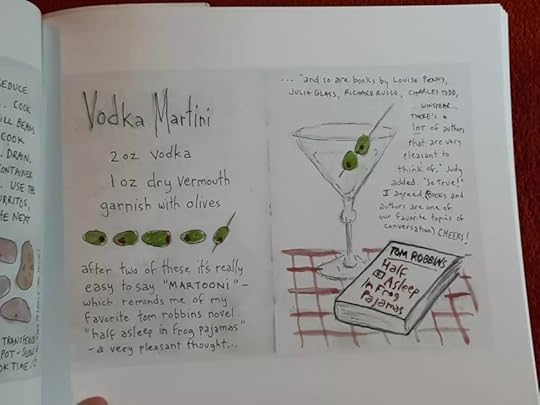 EDUCE
... COOK
ILL BEANS
COOK
. DRAIN.
ONTAINER
. USE TH
URRITOS,
HE NEXT
TRANSFERRED
POT - SLOW
OK TIME.
Vodka Martini
2 oz vodka
1 oz dry vermouth
garnish with olives
after two of these it's really
easy to say "MARTOONI" -
which reminds me of my
favorite tom robbins novel
"half asleep in frog pajamas"
- a very pleasant thought...
... "and so are books by LOUISE PENNY,
JULIA GLASS, RICHARD RUSSO, CHARLES TODD,
WINSPEAR...
THERE'S A
LOT of authors
that are very
pleasant to
think of," Judy
added. "So True!"
I agreed (Books and
authors are one of
our favorite topics of
conversation) CHEERS!
TOM ROBBINS
Half
Asleep
In Frog
Pajamas